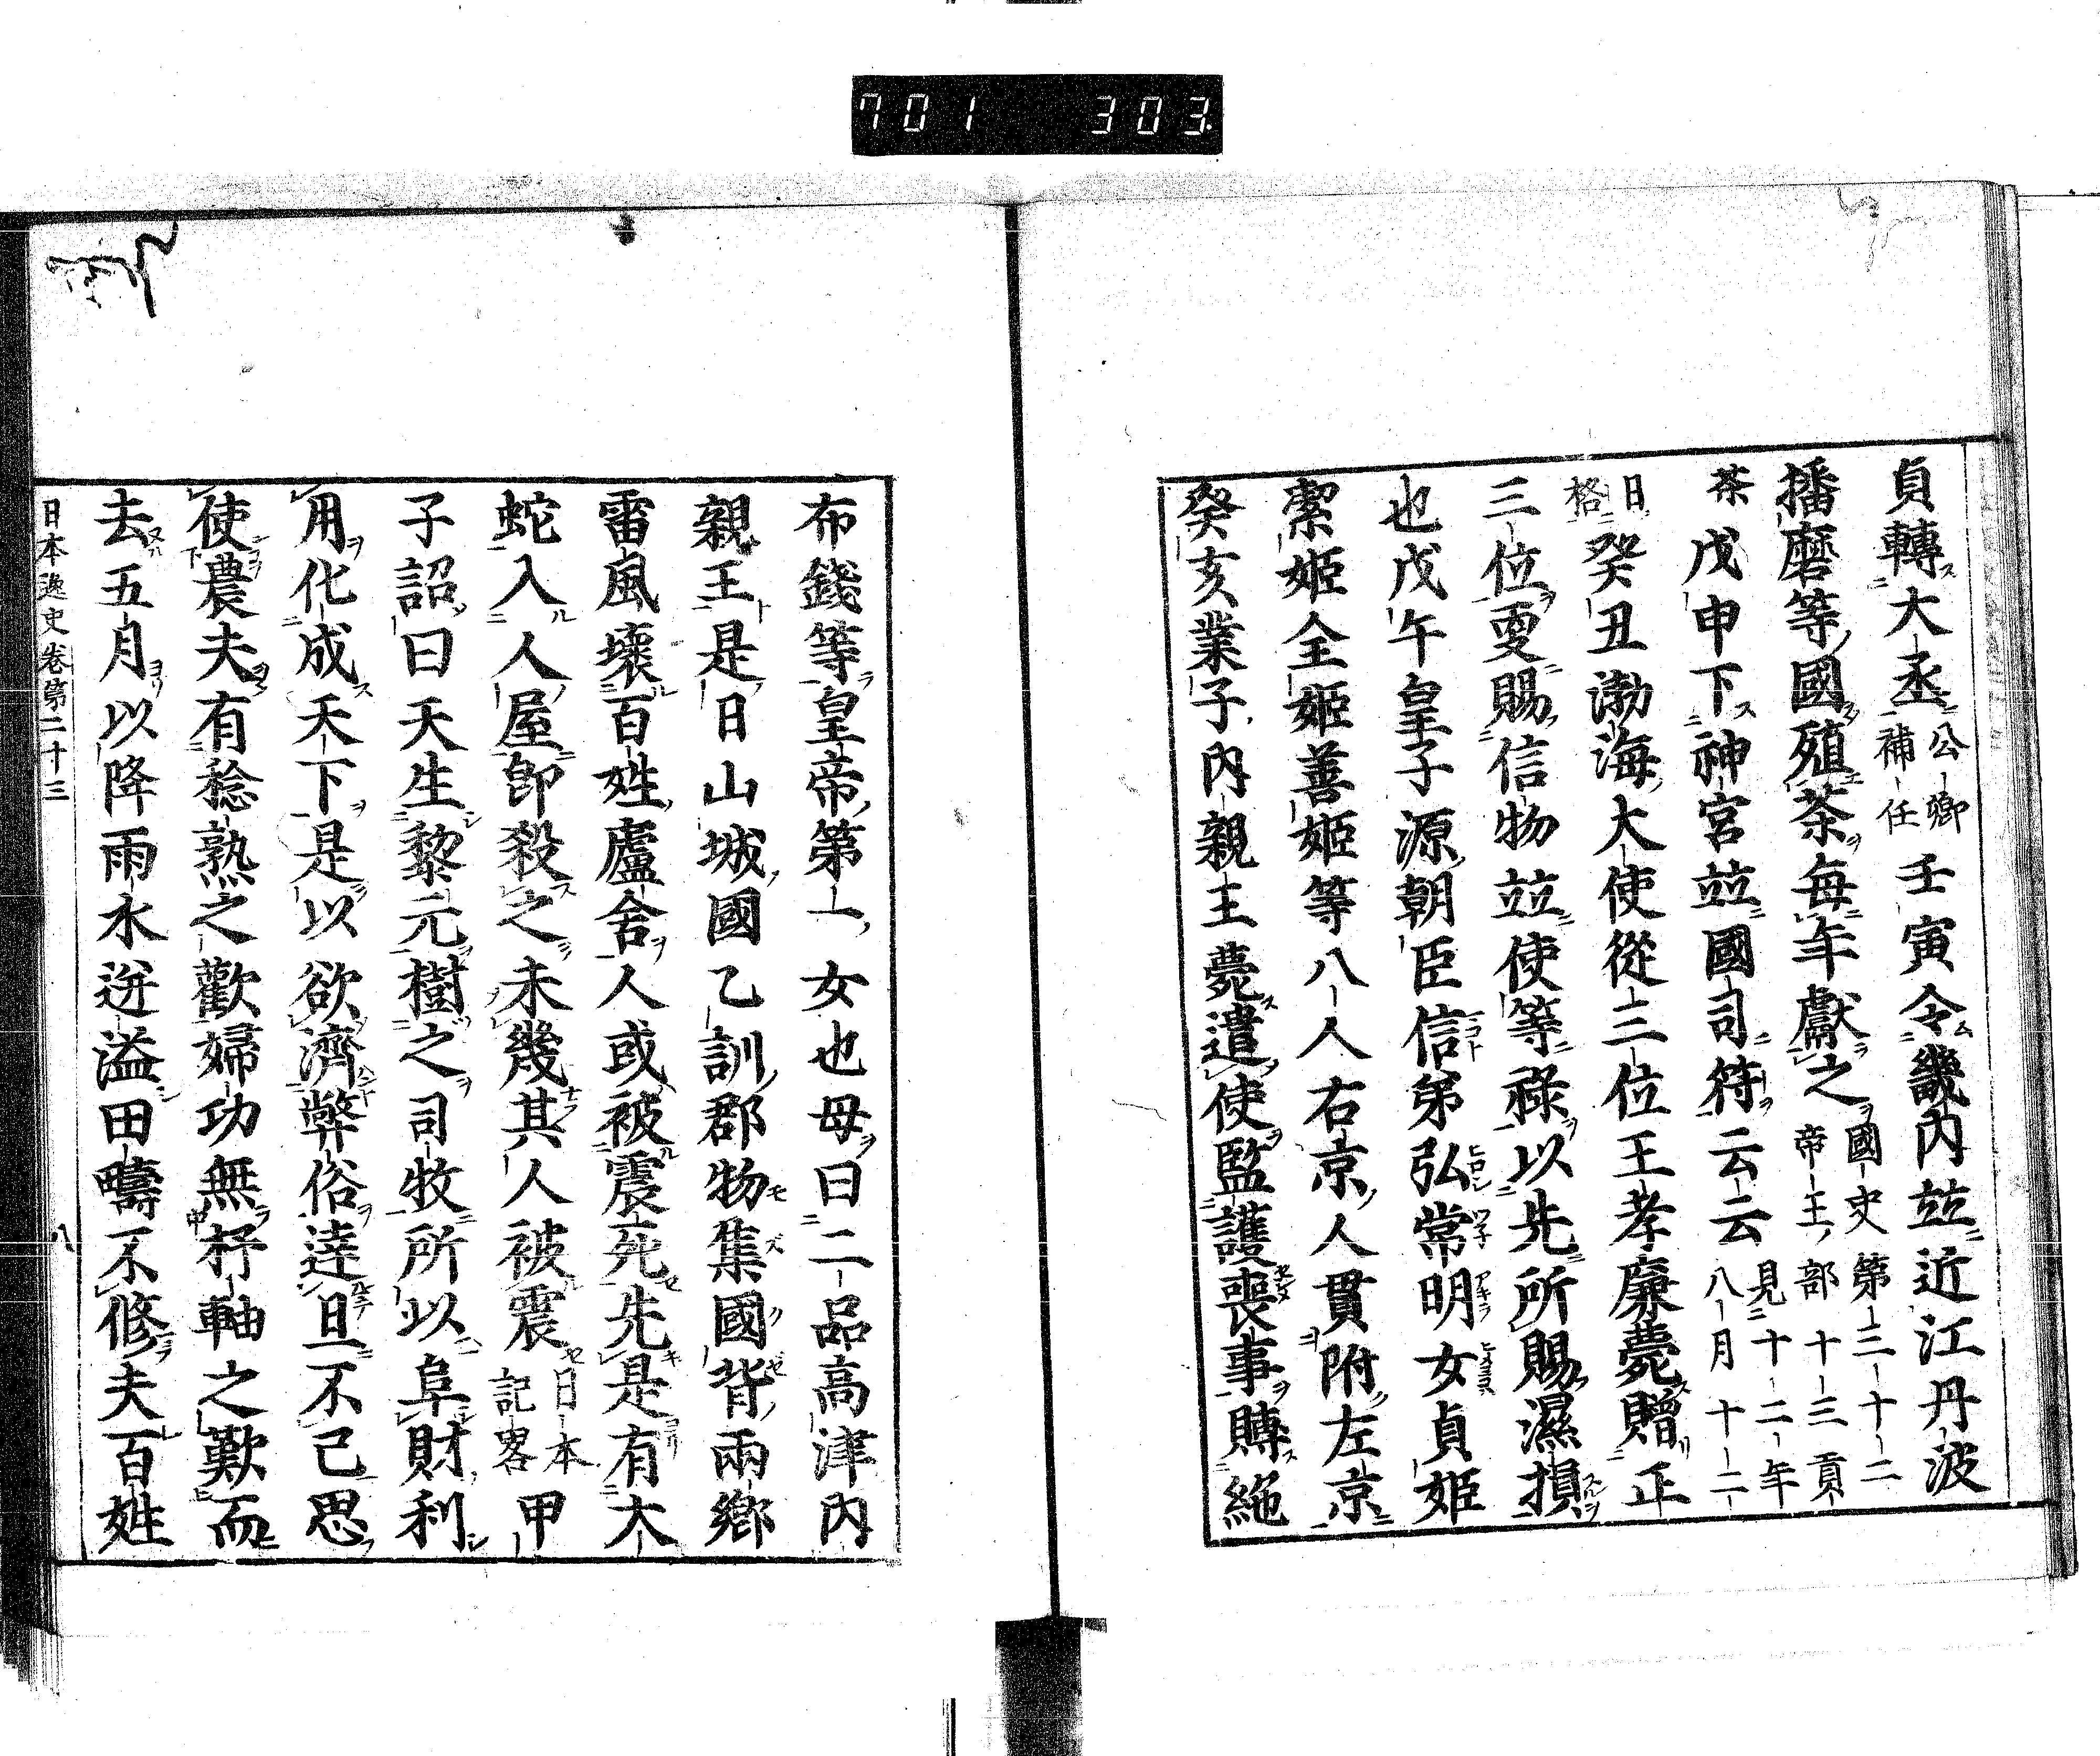 701 303
貞轉大丞公卿補任壬寅令畿內竝近江丹波
播磨等國殖茶每年獻之國史第三十二帝王部十三貢
茶戊申下神宮竝國司符云云見十二年八月十二
日格癸丑渤海大使從三位王孝廉薨贈正
三位更賜信物竝使等祿以先所賜濕損
也戊午皇子源朝臣信弟弘常明女貞姬
潔姬全姬善姬等八人右京人貫附左京
癸亥業子內親王薨遣使監護喪事賻絁
布錢等皇帝第一女也母曰二品高津內
親王是日山城國乙訓郡物集國背兩鄉
雷風壞百姓廬舍人或被震死先是有大
蛇入人屋卽殺之未幾其人被震日本記畧甲
子詔曰天生黎元樹之司牧所以阜財利
用化成天下是以欲濟弊俗逵旦不已思
使農夫有稔熟之歡婦功無杼軸之歎而
去五月以降雨水迸溢田疇不修夫百姓
日本逸史卷第二十三 八